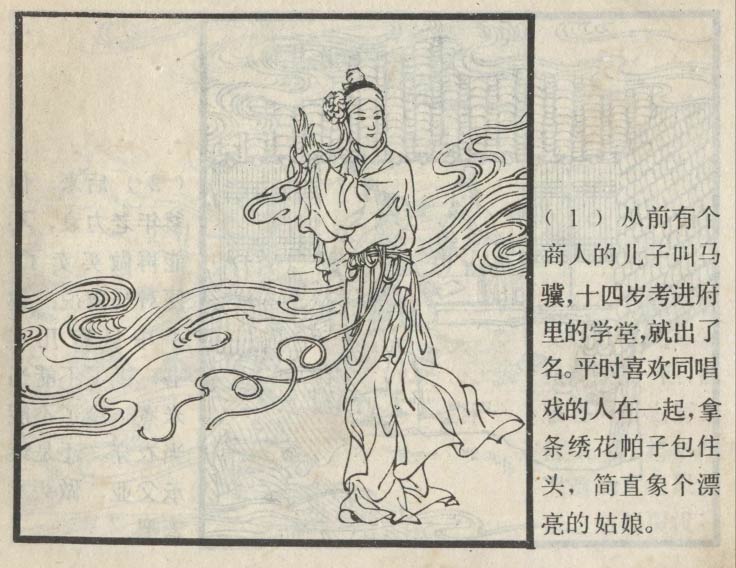 （1）从前有个
商人的儿子叫马
骥，十四岁考进府
里的学堂，就出了
名。平时喜欢同唱
戏的人在一起，拿
条绣花帕子包住
头，简直象个漂
亮的姑娘。